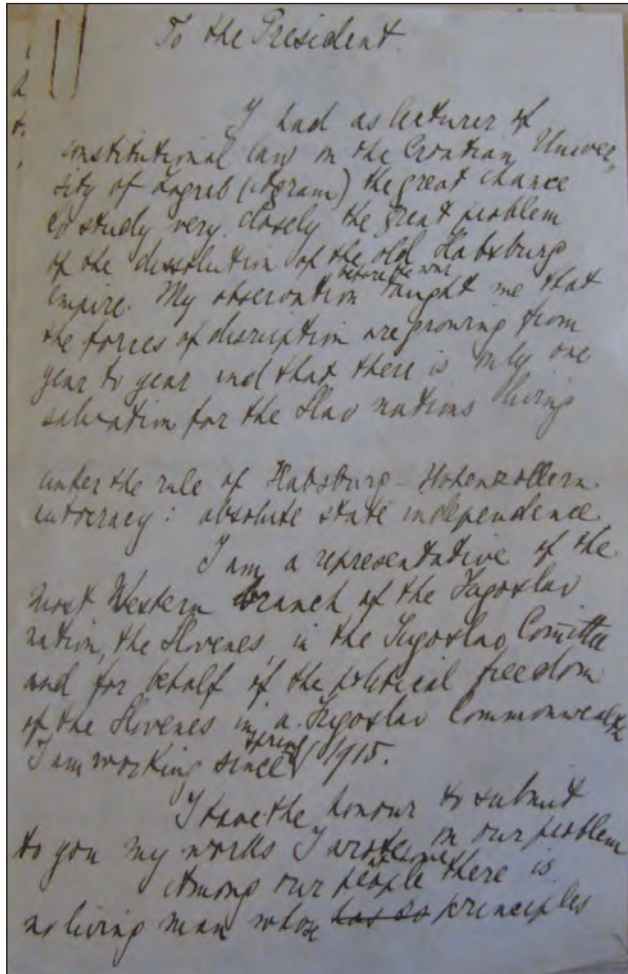 To the President.
I had as lecturer of
constitutional law on the Croatian Univer-
sity of Zagreb (Agram) the great chance
to study very closely the great problem
of the dissolution of the old Habsburg
before the war
empire. My observation taught me that
the forces of disruption are growing from
year to year and that there is only one
salvation for the Slav nations living
under the rule of Habsburg-Hohenzollern
autocracy: absolute state independence.
I am a representative of the
most Western branch of the Jugoslav
nation, the Slovenes, in the Jugoslav Comittee
and for behalf of the political freedom
of the Slovenes in a Jugoslav Commonwealth
spring
I am working since 1915.
I have the honour to submit
to you my works I wrote on our problem
at home
Among our people there is
no living man whose has so principles